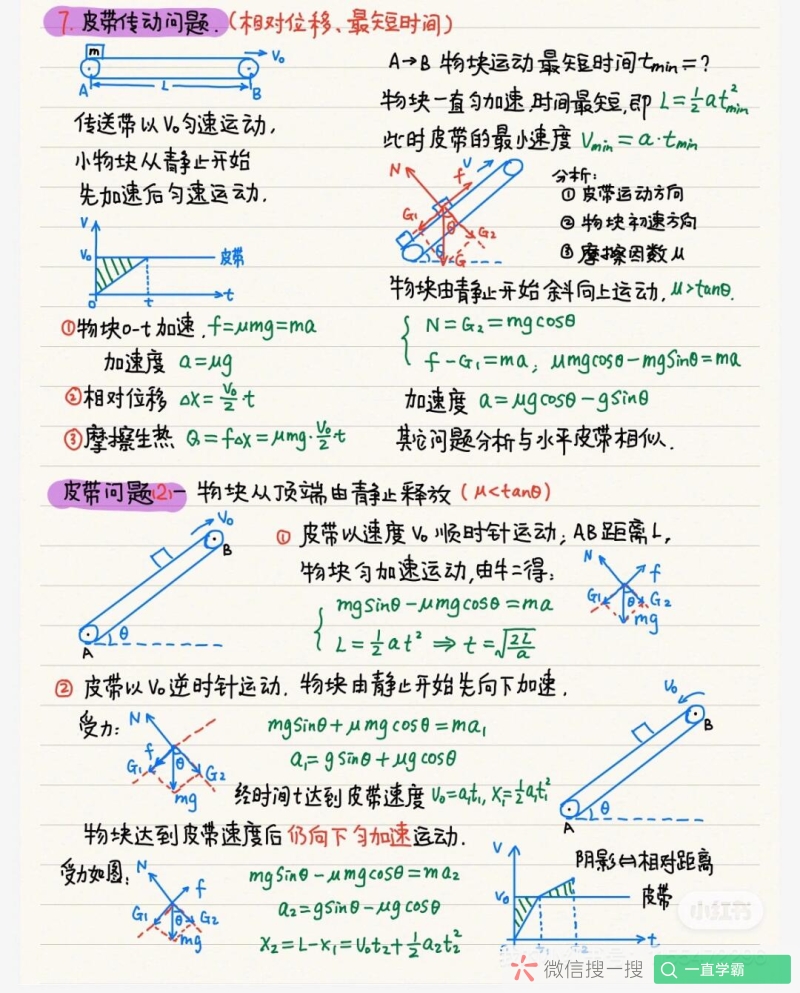 7. 皮带传动问题.(相对位移、最短时间)
m
V₀
A
L
B
传送带以V₀匀速运动,
小物块从静止开始
先加速后匀速运动.
V
V₀
皮带
0
t
t
①物块0-t加速. f=μmg=ma
加速度 a=μg
②相对位移 Δx=V₀/2·t
③摩擦生热 Q=fΔx=μmg·V₀/2 t
A→B 物块运动最短时间tmin=?
物块一直匀加速,时间最短,即 L=½at²min
此时皮带的最小速度 Vmin=a·tmin
N
f
V
G₁
θ
G₂
θ
G
分析:
① 皮带运动方向
② 物块初速方向
③ 摩擦因数μ
物块由静止开始斜向上运动, μ>tanθ.
N=G₂=mgcosθ
f-G₁=ma; μmgcosθ-mgsinθ=ma
加速度 a=μgcosθ-gsinθ
其它问题分析与水平皮带相似.
皮带问题(2)- 物块从顶端由静止释放(μ<tanθ)
V₀
B
A
θ
① 皮带以速度V₀顺时针运动; AB距离L,
物块匀加速运动,由牛二得:
mgsinθ-μmgcosθ=ma
L=½at² ⇒ t=√(2L/a)
N
f
G₁
θ
G₂
mg
② 皮带以V₀逆时针运动. 物块由静止开始先向下加速.
受力:
N
f
G₁
θ
G₂
mg
mgsinθ+μmgcosθ=ma₁
a₁=gsinθ+μgcosθ
经时间t达到皮带速度 V₀=a₁t₁, X₁=½a₁t₁²
V₀
B
A
θ
物块达到皮带速度后仍向下匀加速运动.
受力如图:
N
f
G₁
θ
G₂
mg
mgsinθ-μmgcosθ=ma₂
a₂=gsinθ-μgcosθ
X₂=L-x₁=V₀t₂+½a₂t₂²
V
V₀
阴影⇔相对距离
皮带
t₁
t₂
t
小红书
微信搜一搜
一直学霸